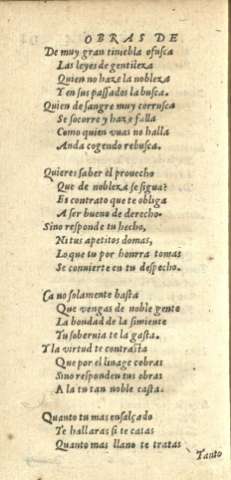 OBRAS DE
De muy gran tiniebla ofusca
Las leyes de gentileza
Quien no haze la nobleza
Y en sus passados la busca.
Quien de sangre muy corrusca
Se socorre y haze falla
Como quien vuas no halla
Anda cogendo rebusca.
Quieres saber el prouecho
Que de nobleza se sigua?
Es contrato que te obliga
A ser bueno de derecho.
Sino responde tu hecho,
Ni tus apetitos domas,
Lo que tu por honrra tomas
Se conuierte en tu despecho.
Ca no solamente basta
Que vengas de noble gente
La bondad de la simiente
Tu soberuia te la gasta.
Y la virtud te contrasta
Que por el linage cobras
Sino responden tus obras
A la tu tan noble casta.
Quanto tu mas ensalçado
Te hallaras si te catas
Quanto mas llano te tratas
Tanto